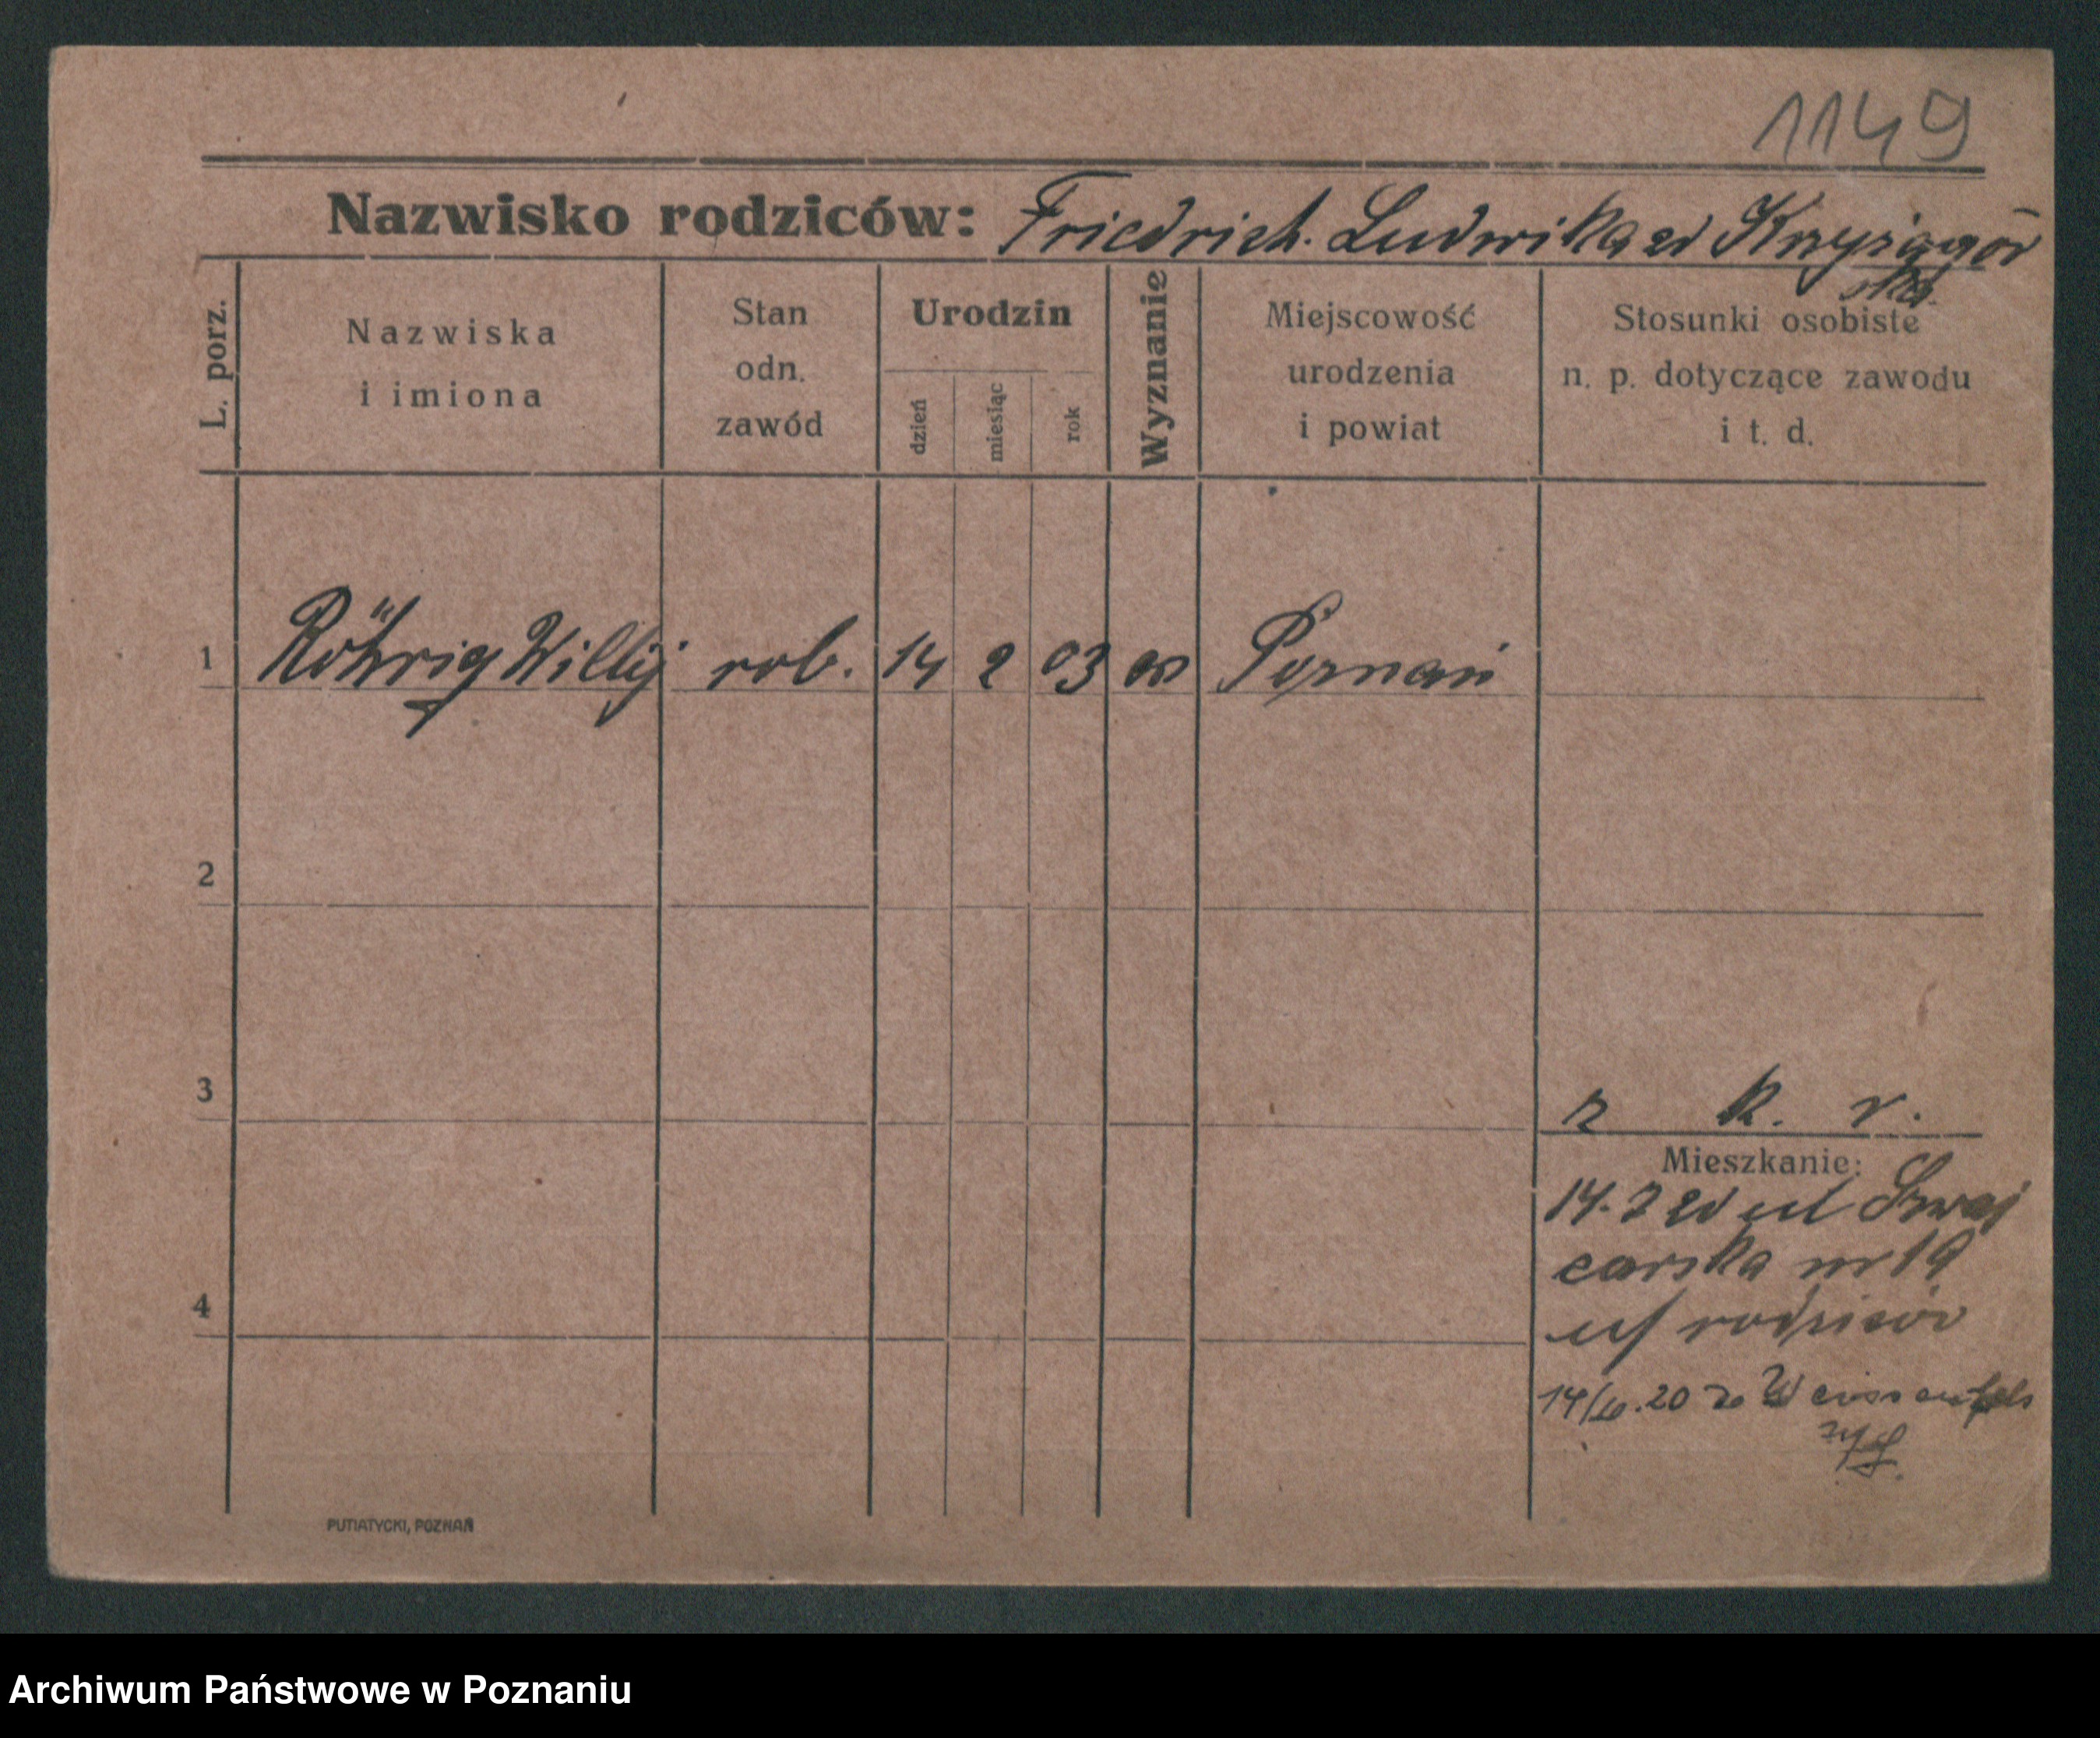 1149
Nazwisko rodziców: Friedrich. Ludwika zd Krzyżagór
ska.
L. porz.
Nazwiska
i imiona
Stan
odn.
zawód
Urodzin
dzień
miesiąc
rok
Wyznanie
Miejscowość
urodzenia
i powiat
Stosunki osobiste
n. p. dotyczące zawodu
i t. d.
1 Röhrig Willij rob. 14 2 03 Poznań
2
3
k. r.
Mieszkanie:
14. ul Szwaj
carska nr 19
u/ rodziców
4
14/6.20 do Weissenfels
PUTIATYCKI, POZNAŃ
Archiwum Państwowe w Poznaniu